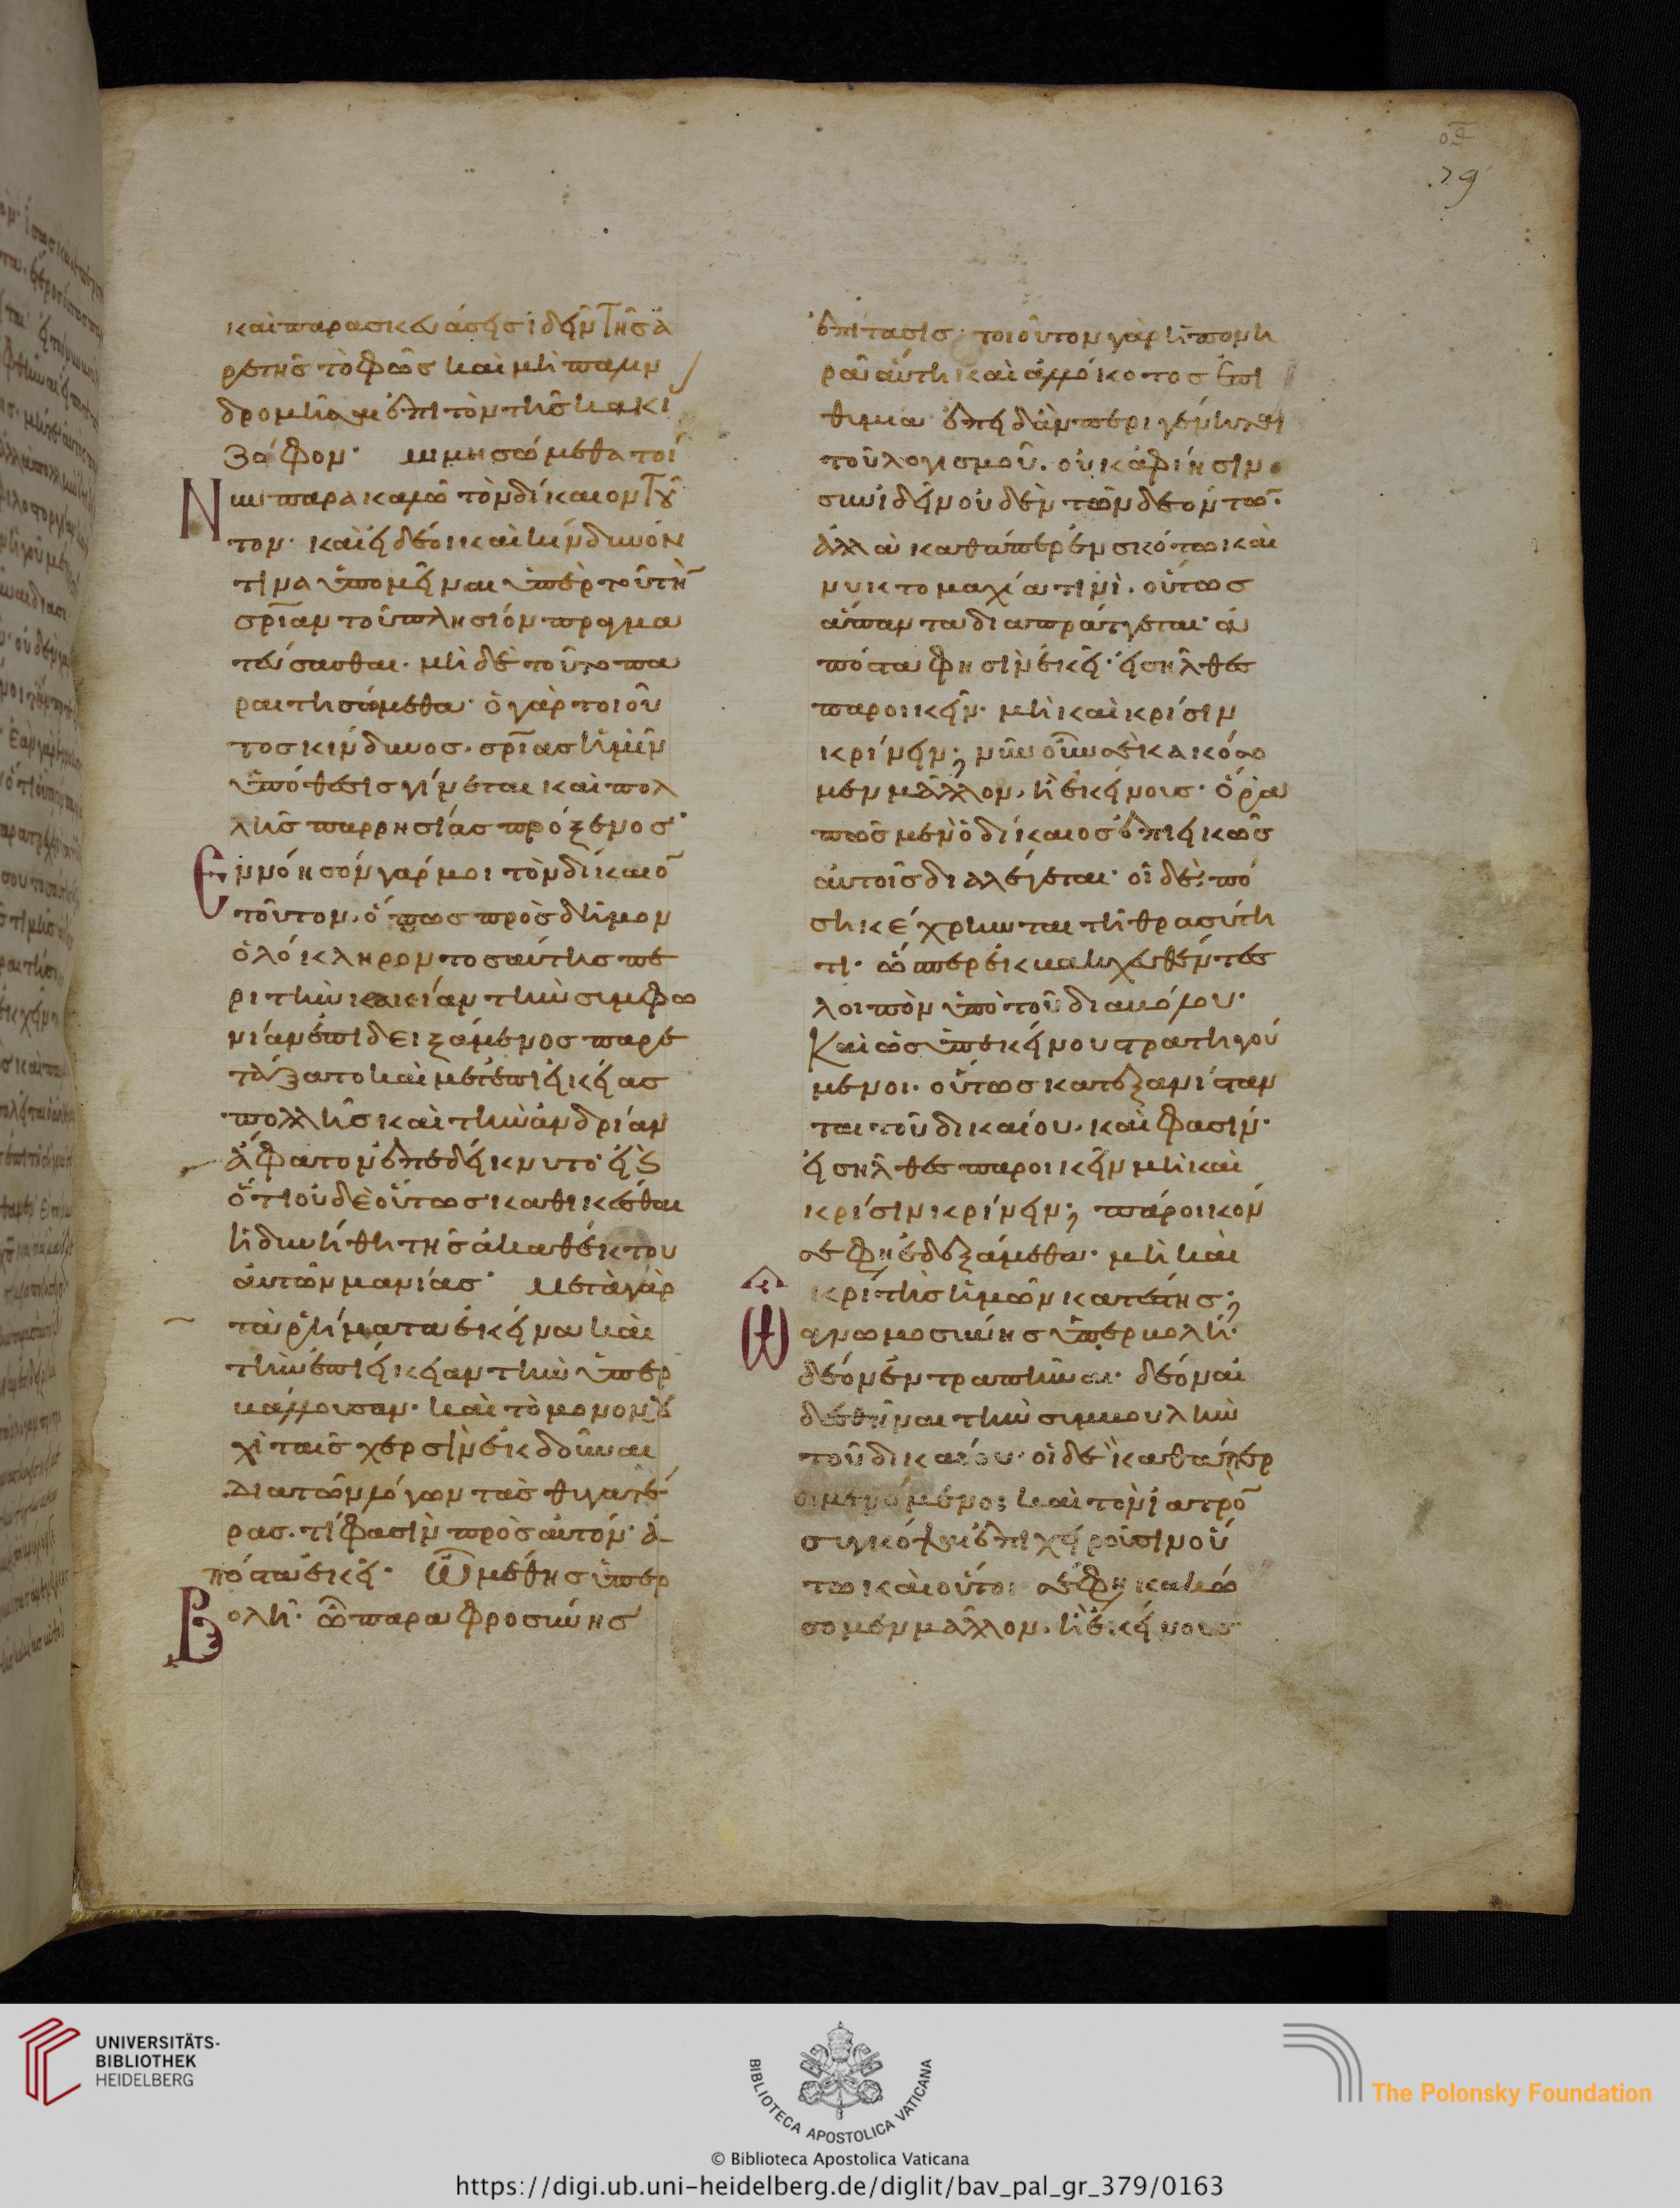 καὶ παρασκευάσει ἰδεῖν τῆς ἀ
ρετῆς τὸ φῶς καὶ μὴ παλιν
δρομῆσαι ἐπὶ τὸν τῆς κακί
ζόφον· μιμησώμεθα τοί
Νυν παρακαλῶ τὸν δίκαιον τοῦ
τον· κἂν εἰ δέοι καὶ κίνδυνόν
τινα ὑπομεῖναι ὑπὲρ τοῦ τὴ̄
σρ̄ίαν τοῦ πλησίον πραγμα
τεύσασθαι· μὴ δὲ τοῦτο πα
ραιτησώμεθα· ὁ γὰρ τοιοῦ
τος κίνδυνος. σρ̄ίας ἡμῖν
ὑπόθεσις γίνεται καὶ πολ
λῆς παρρησίας πρόξενος·
Εννόησόν γάρ μοι τὸν δίκαιο̄
τοῦτον, ὅπως πρὸς δῆμον
ὁλόκληρον τοσαύτης πε
ρὶ τὴν κακίαν τὴν συμφω
νίαν ἐπιδειξάμενος παρε
τάξατο καὶ μετ' ἐπιεικείας
πολλῆς καὶ τὴν ἀνδρίαν
ἄφατον ἐπεδείκνυτο· εἰ ϗ
ὅτι οὐδὲ οὕτως καθικέσθαι
ἠδυνήθη τῆς ἀκαθέκτου
αὐτῶν μανίας· Μετὰ γὰρ
τὰ ῥήματα ἐκεῖνα καὶ
τὴν ἐπιείκειαν τὴν ὑπερ
βάλλουσαν· καὶ τὸ μονονου
χὶ ταῖς χερσὶν ἐκδοῦναι
διὰ τῶν λόγων τὰς θυγατέ
ρας. τί φασὶν πρὸς αὐτόν· ἀ
πόστα ἐκεῖ· Ὢ μέθης ὑπερ
Βολή· ὢ παραφροσύνης
οθ
79
ἐπίτασις· τοιοῦτον γὰρ ἡ πονη
ρὰ αὕτη καὶ ἀλλόκοτος ἐπι
θυμία· ἐπειδὰν περιγένηται
τοῦ λογισμοῦ. οὐκ ἀφίησιν
συνιδεῖν οὐδὲν τῶν δεόντω̄·
ἀλλὰ καθάπερ ἐν σκότω καὶ
νυκτομαχία τινὶ. οὕτως
ἅπαντα διαπράττεται· ἀ
πόστα φησὶν ἐκεῖ· εἰσῆλθες
παροικεῖν· μὴ καὶ κρίσιν
κρίνειν; νῦν οὖν σὲ κακώσο
μεν μᾶλλον. ἢ ἐκείνους· ὅρα
πῶς μὲν ὁ δίκαιος ἐπιεικῶς
αὐτοῖς διαλέγεται· οἱ δὲ πό
ση κέχρηνται τῆ θρασύτη
τι· ὥσπερ ἐκβακχευθέντες
λοιπὸν ὑπὸ τοῦ διαβόλου·
Καὶ ὡς ὑπ' ἐκείνου στρατηγού
μενοι. οὕτως κατεξανίσταν
ται τοῦ δικαίου. καὶ φασίν·
εἰσῆλθες παροικεῖν μὴ καὶ
κρίσιν κρίνειν; πάροικόν
σέ φη ἐδεξάμεθα· μὴ καὶ
κριτὴς ἡμῶν κατέστης;
Ὢ ἀγνωμοσύνης ὑπερβολή·
δέον ἐντραπῆναι· δέον αἰ
δεσθῆναι τὴν συμβουλὴν
τοῦ δικαίου· οἱ δὲ καθάπερ
μαινόμενοι καὶ τὸν ἰατρὸ̄
συγκόψαι ἐπιχειροῦσιν οὕ
τω καὶ οὗτοι σέ φη κακώ
σομεν μᾶλλον. ἢ ἐκείνους
UNIVERSITÄTS-
BIBLIOTHEK
HEIDELBERG
BIBLIOTECA APOSTOLICA VATICANA
The Polonsky Foundation
© Biblioteca Apostolica Vaticana
https://digi.ub.uni-heidelberg.de/diglit/bav_pal_gr_379/0163